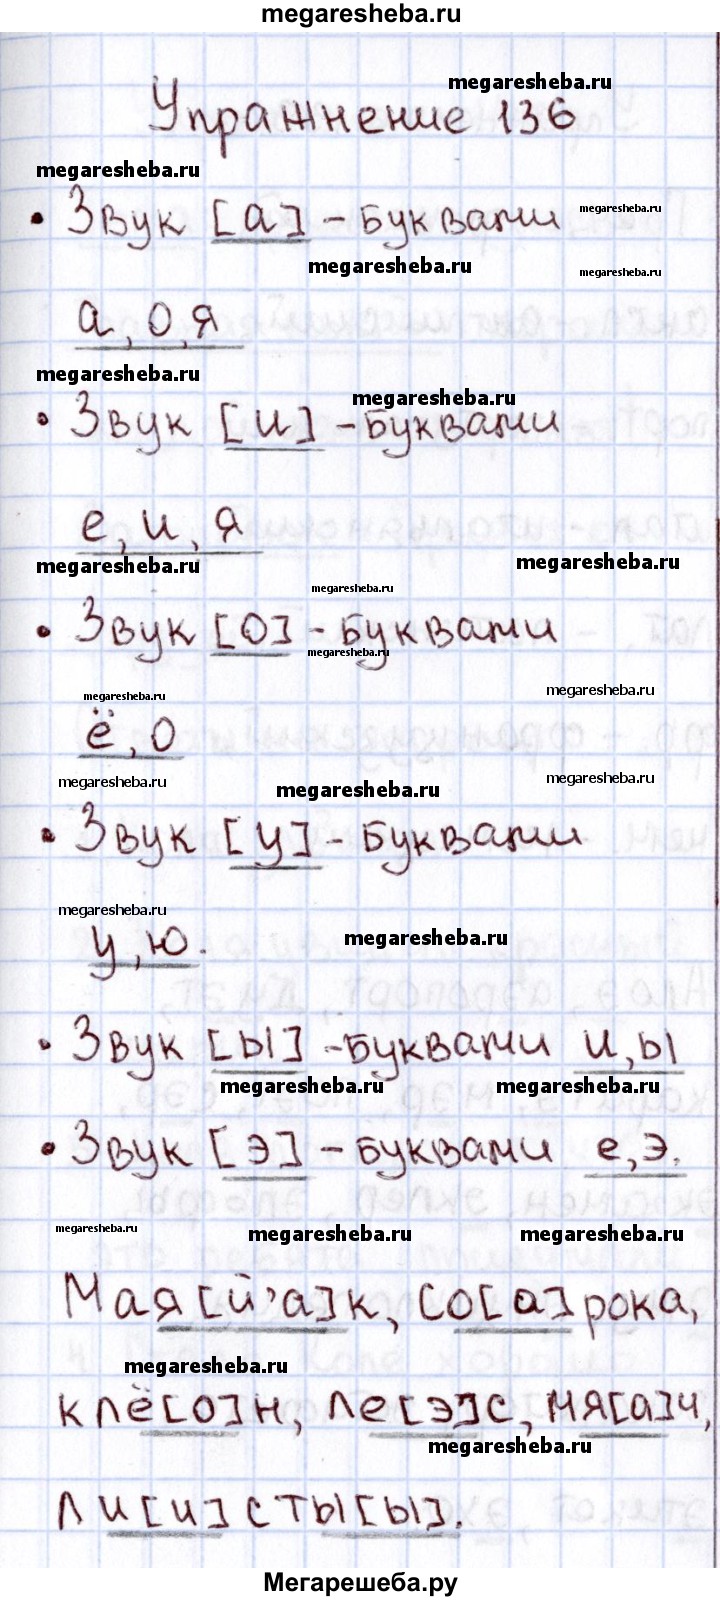 megaresheba.ru
megaresheba.ru
Упражнение 136
megaresheba.ru
• Звук [а] - буквами
megaresheba.ru
megaresheba.ru
megaresheba.ru
а, о, я
megaresheba.ru
megaresheba.ru
• Звук [и] - буквами
е, и, я
megaresheba.ru
megaresheba.ru
megaresheba.ru
• Звук [о] - буквами
megaresheba.ru
megaresheba.ru
megaresheba.ru
ё, о
megaresheba.ru
megaresheba.ru
megaresheba.ru
• Звук [у] - буквами
megaresheba.ru
у, ю.
megaresheba.ru
• Звук [ы] - буквами и, ы
megaresheba.ru
megaresheba.ru
• Звук [э] - буквами е, э.
megaresheba.ru
megaresheba.ru
megaresheba.ru
Мая[й'а]к, со[а]рока,
megaresheba.ru
клё[о]н, ле[э]с, мя[а]ч,
megaresheba.ru
ли[и]сты[ы].
megaresheba.ru
megaresheba.ru
Мегарешеба.ру